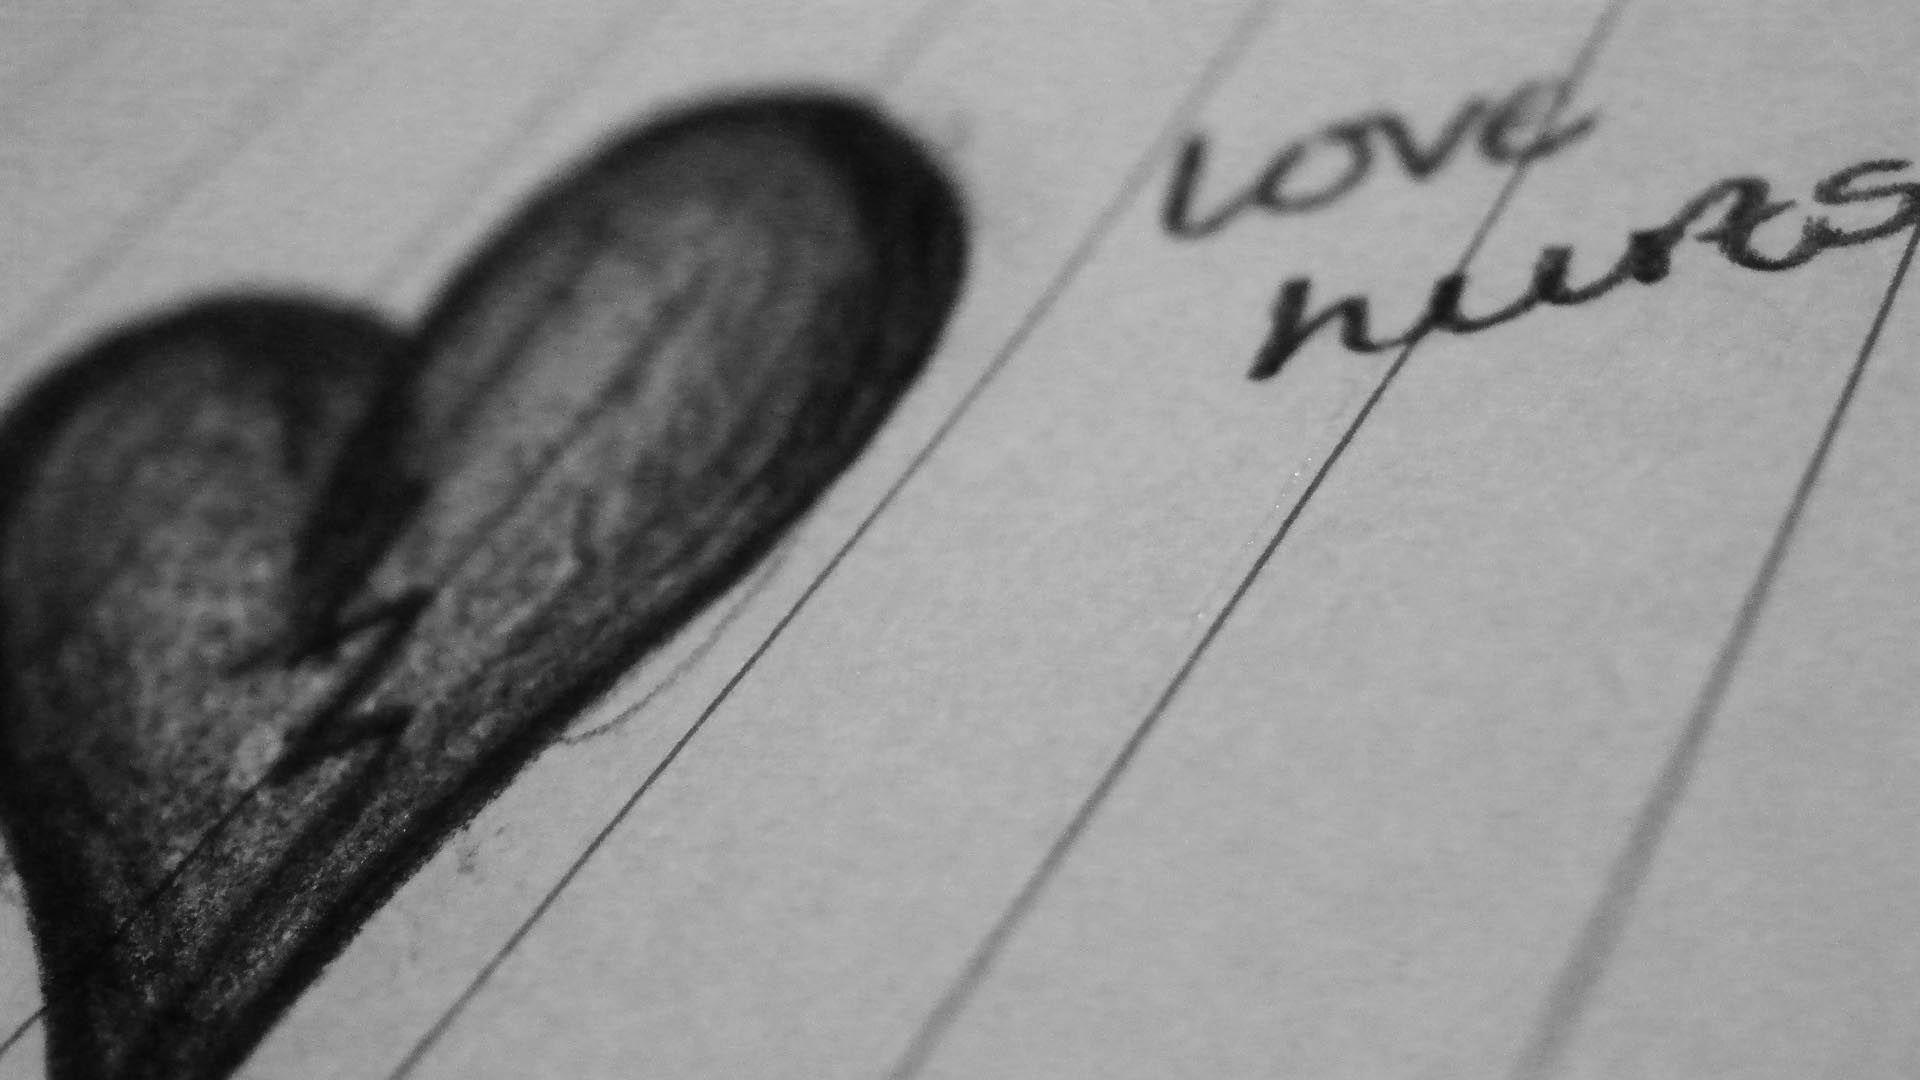 Love
hurts